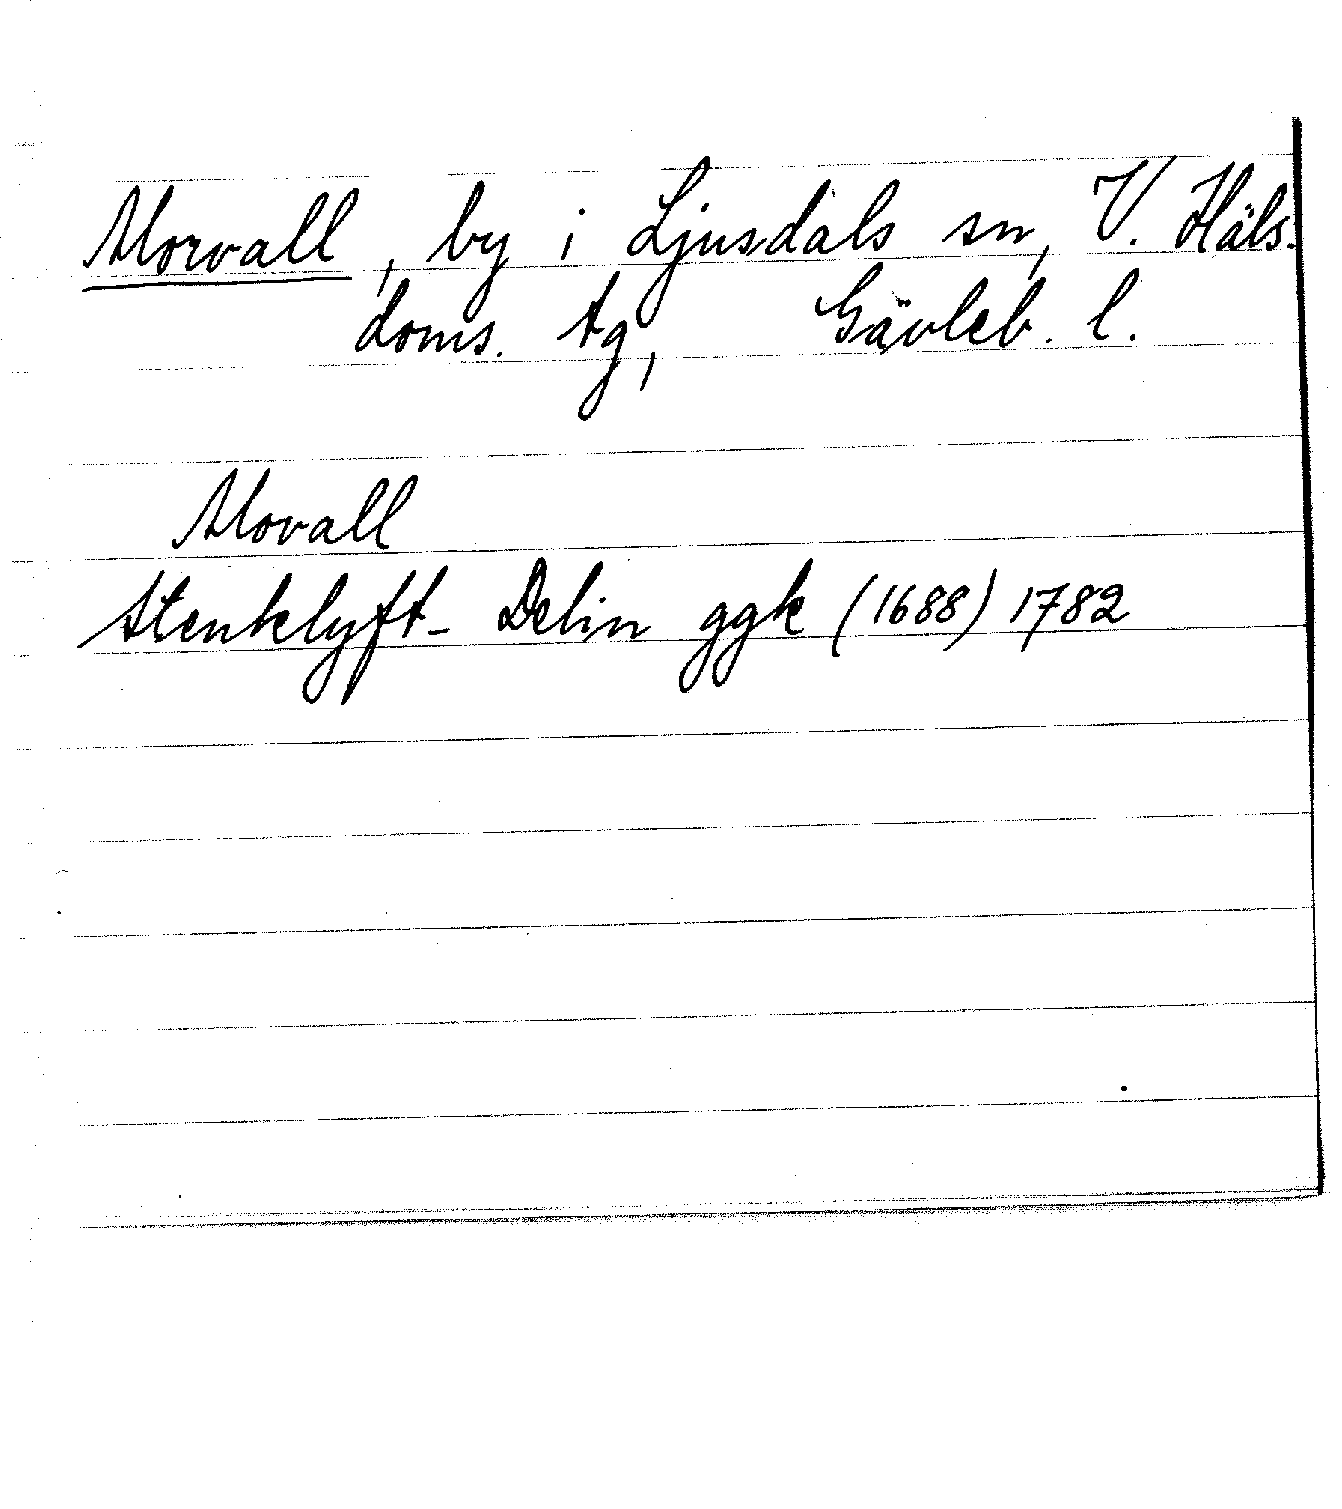 Morvall, by i Ljusdals sn, V. Häls.
doms. tg, Gävleb. l.
Movall
Stenklyft-Delin ggk (1688) 1782